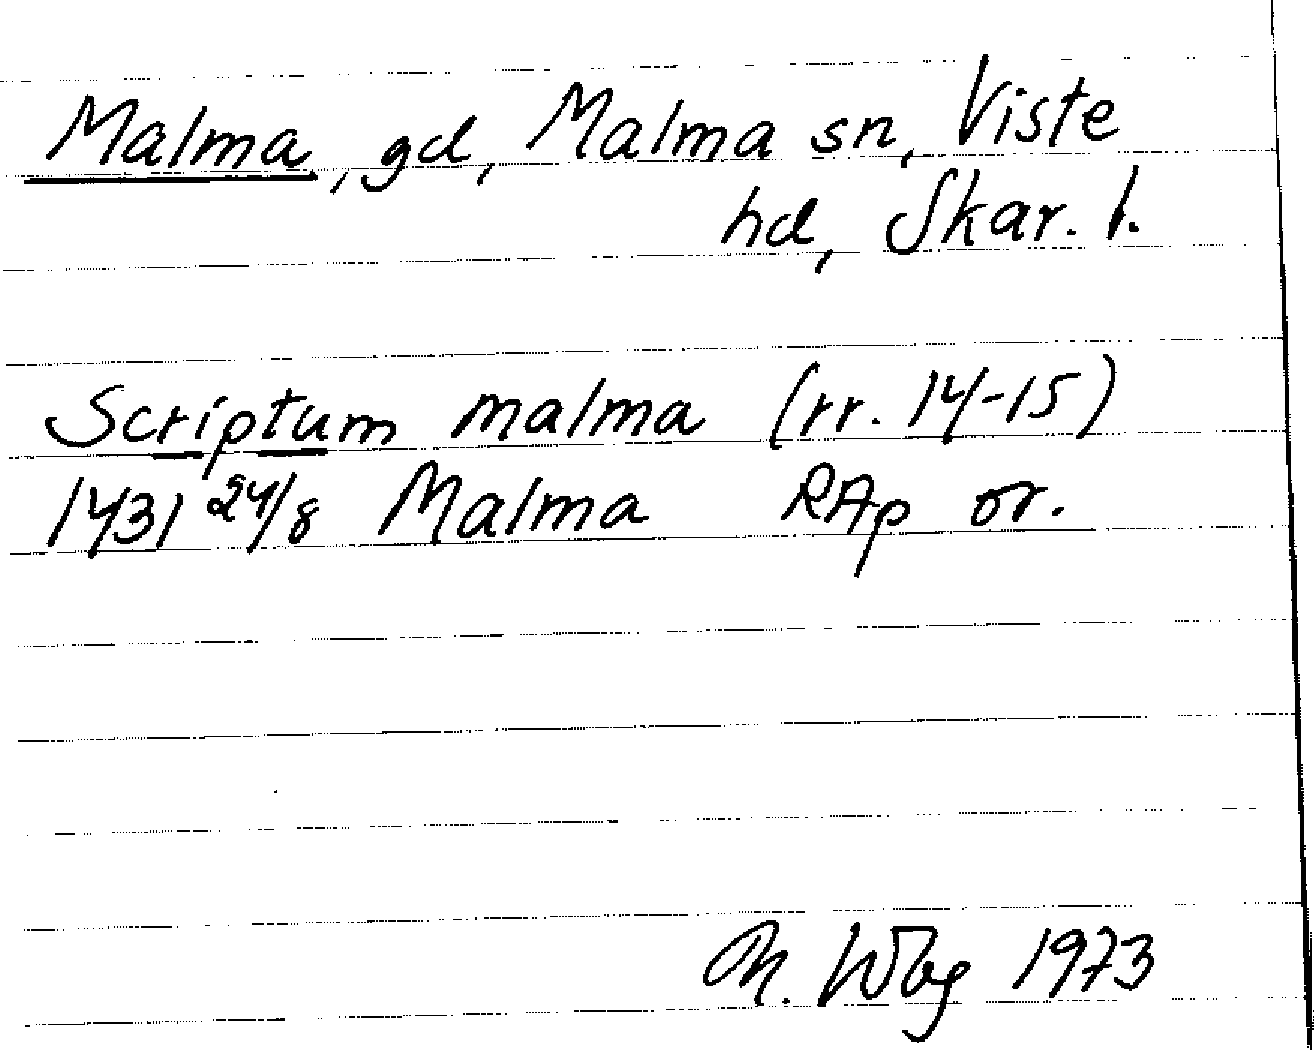 Malma, gd, Malma sn, Viste
hd, Skar. l.
Scriptum malma (rr. 14-15)
1431 24/8 Malma RAp or.
1973